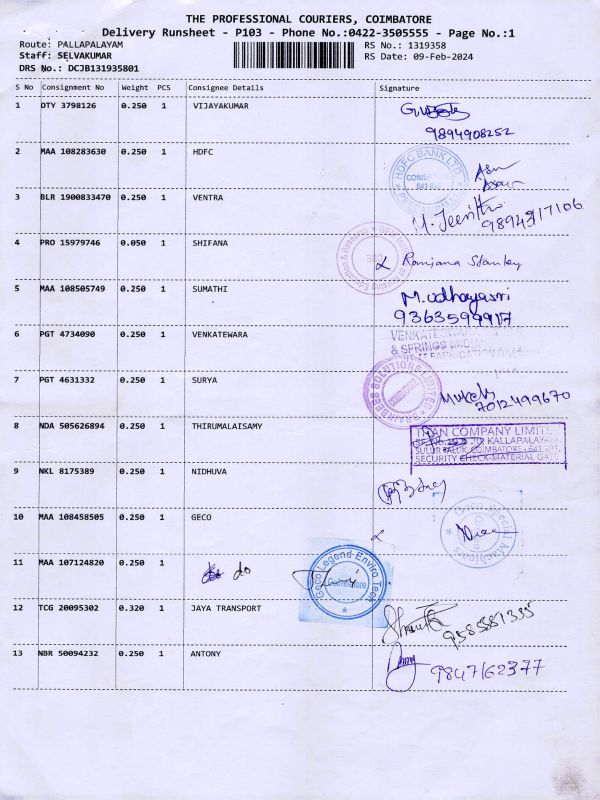 THE PROFESSIONAL COURIERS, COIMBATORE
Delivery Runsheet - P103 - Phone No.:0422-3505555 - Page No.:1
Route: PALLAPALAYAM RS No.: 1319358
Staff: SELVAKUMAR RS Date: 09-Feb-2024
DRS No.: DCJB131935801
S No Consignment No Weight PCS Consignee Details Signature
1 DTY 3798126 0.250 1 VIJAYAKUMAR
9894908252
2 MAA 108283630 0.250 1 HDFC HDFC BANK LTD.
3 BLR 1900833470 0.250 1 VENTRA
4 PRO 15979746 0.050 1 SHIFANA Ramjana Stanley
5 MAA 108505749 0.250 1 SUMATHI M.udhayasri
6 PGT 4734090 0.250 1 VENKATEWARA
& SPRINGS
FABRICATION DIVISION
7 PGT 4631332 0.250 1 SURYA BRAINBEES SOLUTIONS LIMITED
7012499670
8 NDA 505626894 0.250 1 THIRUMALAISAMY COMPANY LIMITE
KALLAPALAYA
SULUR TALUK, COIMBATORE - 641
SECURITY CHECK-MATERIAL GATE
9 NKL 8175389 0.250 1 NIDHUVA
10 MAA 108458505 0.250 1 GECO Geco Special
11 MAA 107124820 0.250 1 do Geco Legend Enviro Teck
Coimbatore
12 TCG 20095302 0.320 1 JAYA TRANSPORT
13 NBR 50094232 0.250 1 ANTONY 9847162377